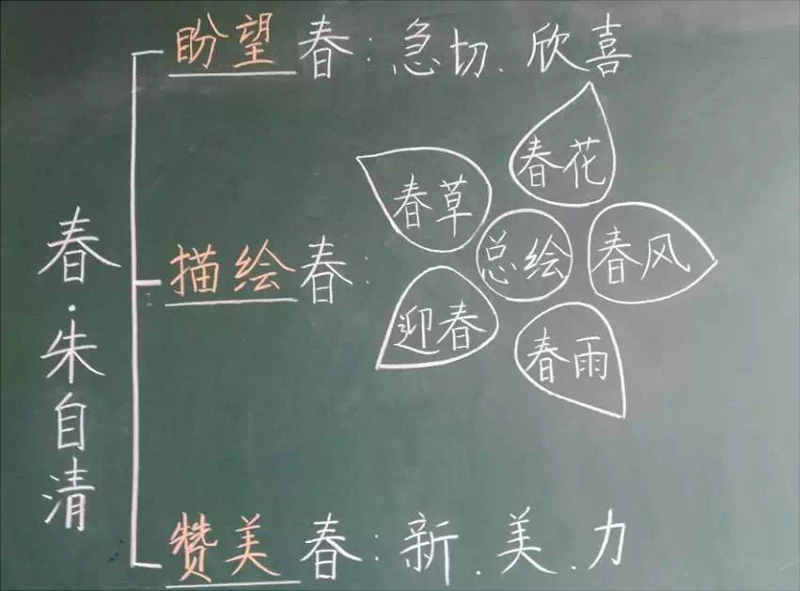 春·朱自清
盼望春:急切、欣喜
描绘春:
春草
春花
总绘
春风
迎春
春雨
赞美春:新.美.力